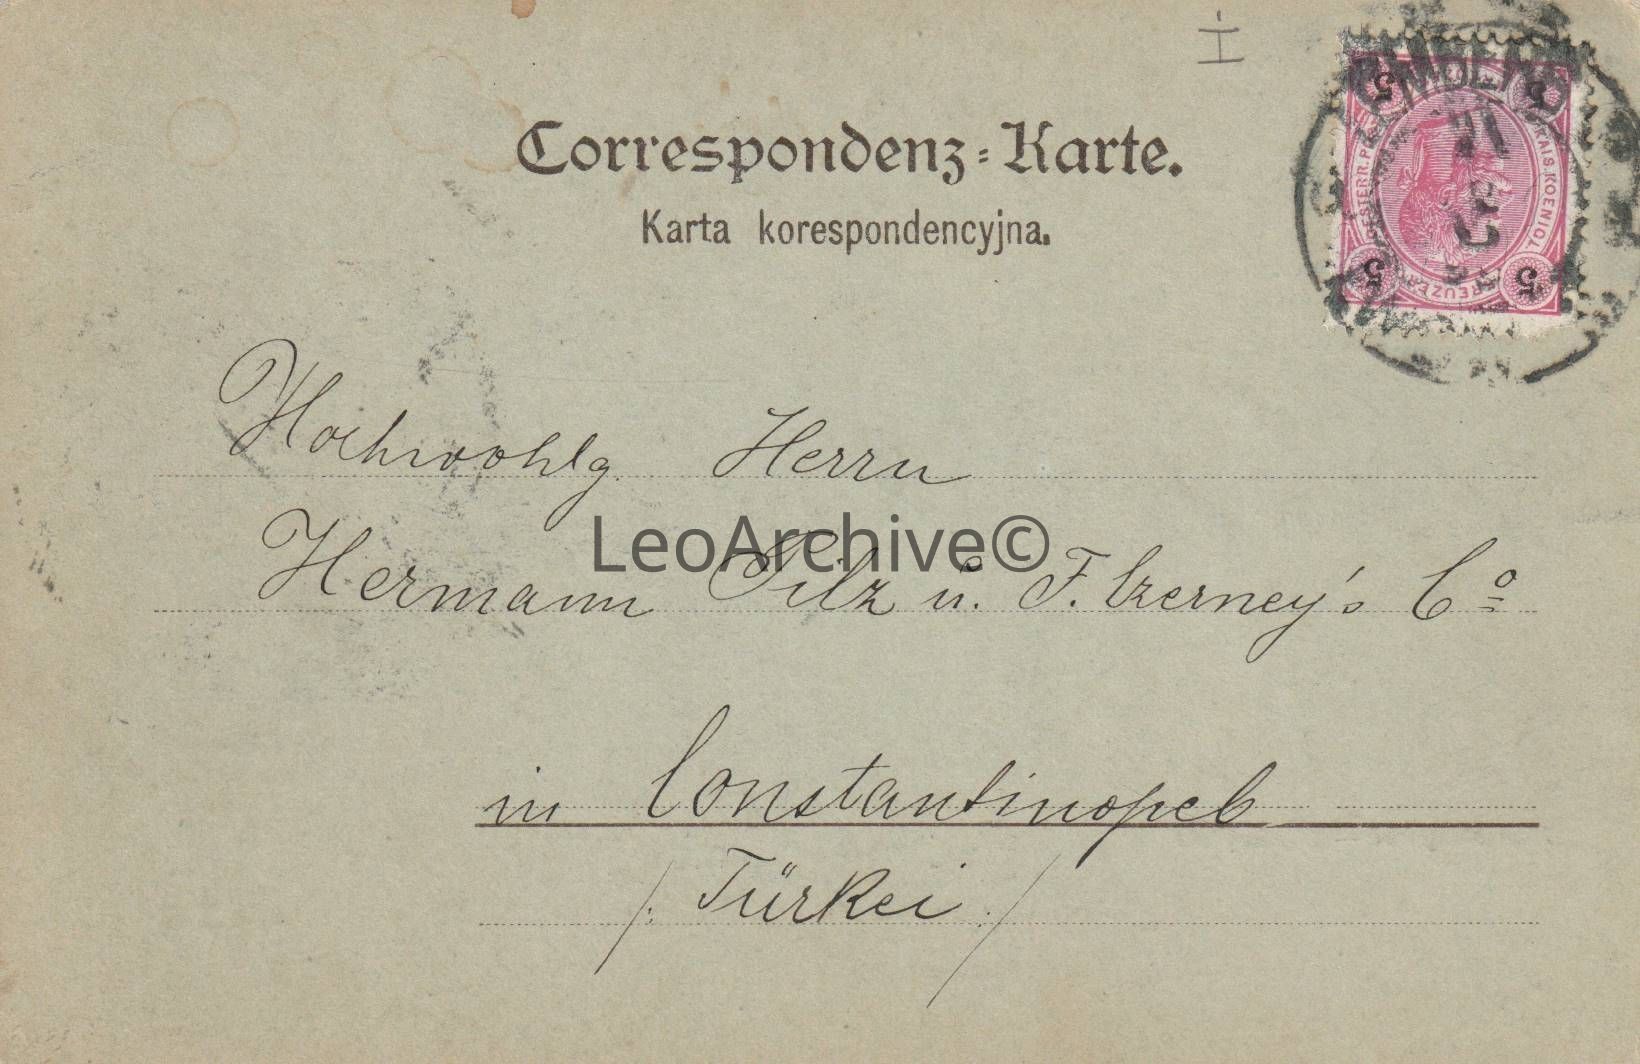 Correspondenz-Karte.
Karta korespondencyjna.
5 5
KAIS. KOENIGL
OESTERR. P
KREUZER
5 5
Hochwohlg. Herrn
LeoArchive©
Hermann Pilz u. F. Czerney's Co
in Constantinopel
/: Türkei :/